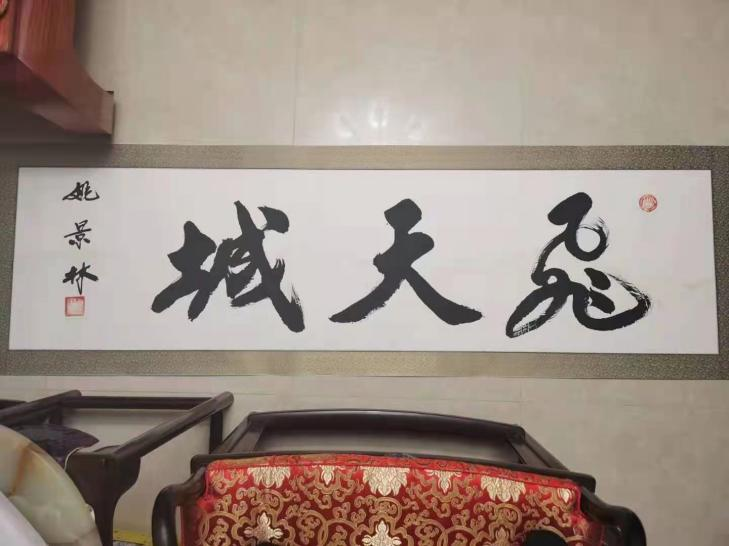 飛天城
姚景林